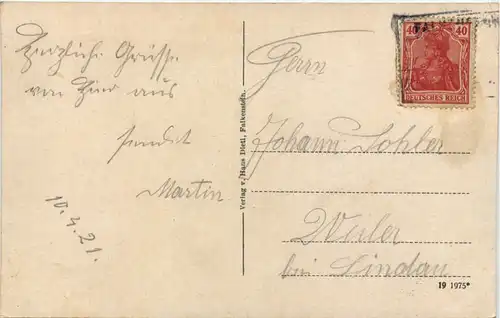 Herzliche Grüsse
von hier aus
sendet
Martin
10.4.21.
Verlag v. Hans Distl, Falkenstein.
40 40
DEUTSCHES REICH
Herrn
Johann Sohler
Weiler
bei Lindau
19 1975*